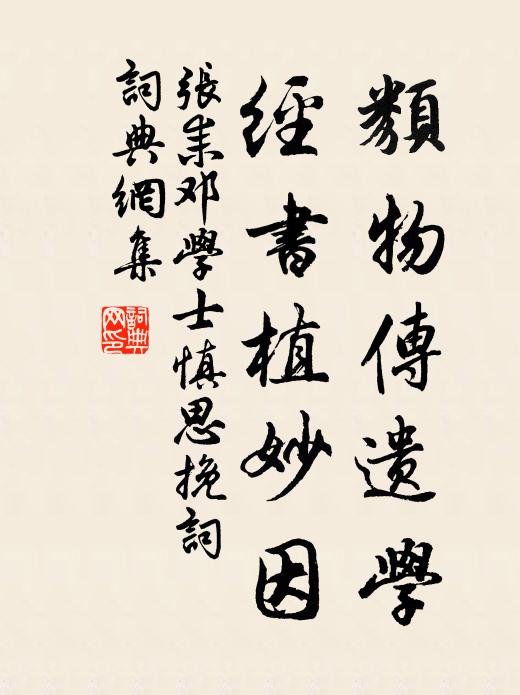 類物傳遺學
經書植妙因
張耒邓學士慎思挽詞
詞典網集
詞典网印